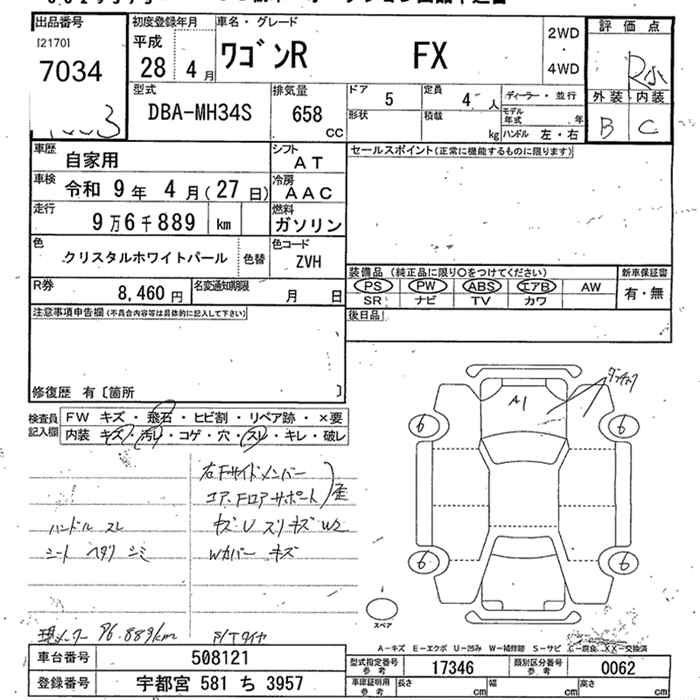 出品番号
[2170]
7034
初度登録年月
平成
28 4月
車名・グレード
ワゴンR FX
2WD
・
4WD
評価点
R小
外装 内装
B C
型式
DBA-MH34S
排気量
658
cc
ドア 5
定員 4人
ディーラー・並行
形状
積載 kg
モデル年式 年
ハンドル 左・右
車歴
自家用
シフト
AT
セールスポイント(正常に機能するものに限ります)
車検
令和 9年 4月(27日)
冷房
AAC
走行
9万6千889 km
燃料
ガソリン
色
クリスタルホワイトパール
色替
色コード
ZVH
装備品 (純正品に限り○をつけてください)
新車保証書
PS PW ABS エアB AW
有・無
SR ナビ TV カワ
R券
8,460円
名変通知期限
月 日
後日品
注意事項申告欄(不具合内容等は具体的に記入して下さい)
修復歴 有〔箇所 〕
検査員
記入欄
FW キズ・飛石・ヒビ割・リペア跡・×要
内装 キズ・汚レ・コゲ・穴・スレ・キレ・破レ
A1
6 6
6 6
右Fサイドメンバー
コア、Fロアサポート 歪
ハンドル スレ
キズU スリキズ W2
シート ヘタリ シミ
Wカバー キズ
現メーター 96,889km
スペア
A-キズ E-エクボ U-凹み W-補修跡 S-サビ C-腐食 XX-交換済
車台番号 508121
型式指定番号
参考
17346
類別区分番号
参考
0062
登録番号 宇都宮 581 ち 3957
車庫証明用
参考
長さ cm
幅 cm
高さ cm